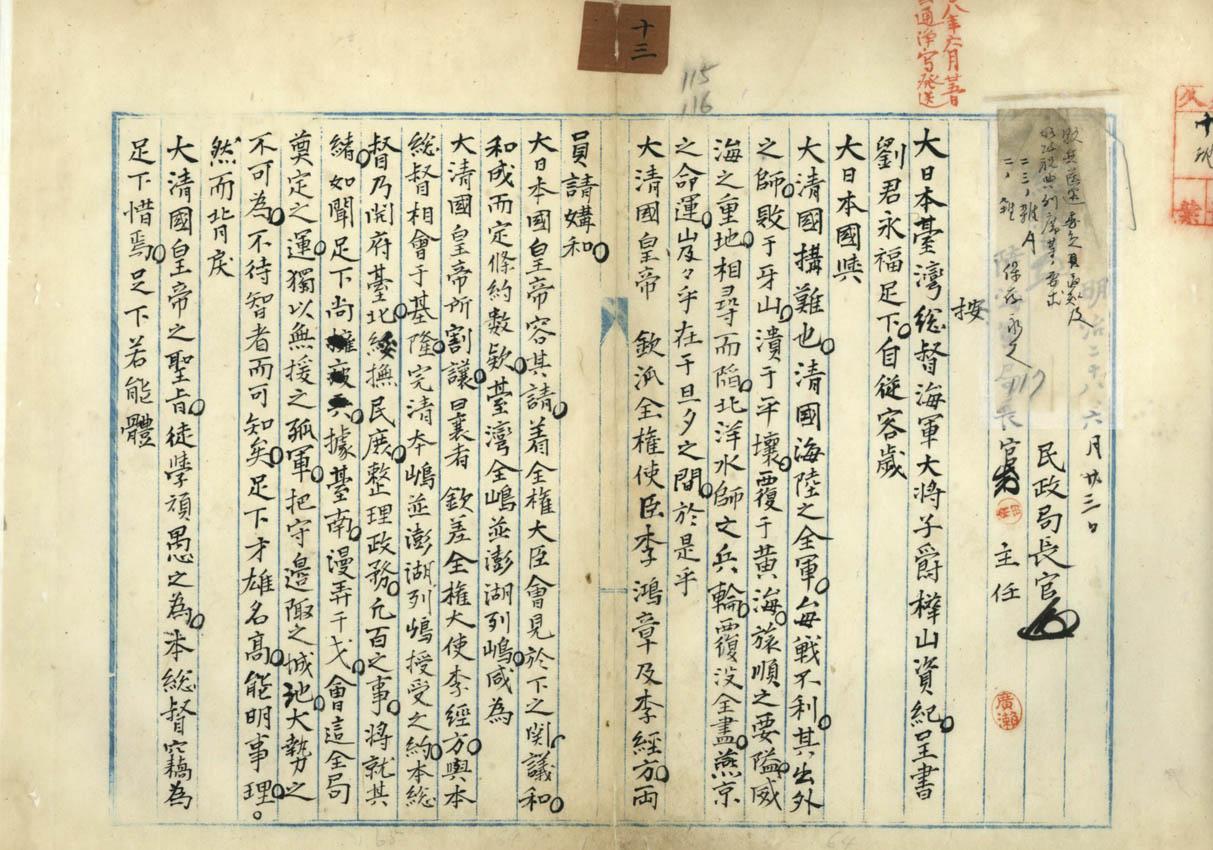 十三
115
116
117
明治二十八 六月廿三日
民政局長官
主任
廣瀨
按
大日本臺灣総督海軍大将子爵樺山資紀呈書
劉君永福足下自従客歳
大日本國與
大清國搆難也清國海陸之全軍毎戰不利其出外
之師敗于牙山潰于平壤覆于黄海旅順之要隘威
海之重地相尋而陷北洋水師之兵輪覆没全盡燕京
之命運岌々乎在于旦夕之間於是乎
大清國皇帝 欽派全權使臣李鴻章及李經方両
員請媾和
大日本國皇帝容其請着全権大臣會見於下之関議和
和成而定條約数欵臺灣全嶋並澎湖列嶋咸為
大清國皇帝所割讓曩者 欽差全権大使李經方與本
総督相會于基隆完清本嶋並澎湖列嶋授受之約本総
督乃開府臺北綏撫民庶整理政務凢百之事将就其
緒如聞足下尚據臺南漫弄干戈會這全局
奠定之運獨以無援之孤軍把守邉陬之城池大勢之
不可為不待智者而可知矣足下才雄名高能明事理。
然而背戻
大清國皇帝之聖旨徒學頑愚之為本総督窃為
足下惜焉足下若能體